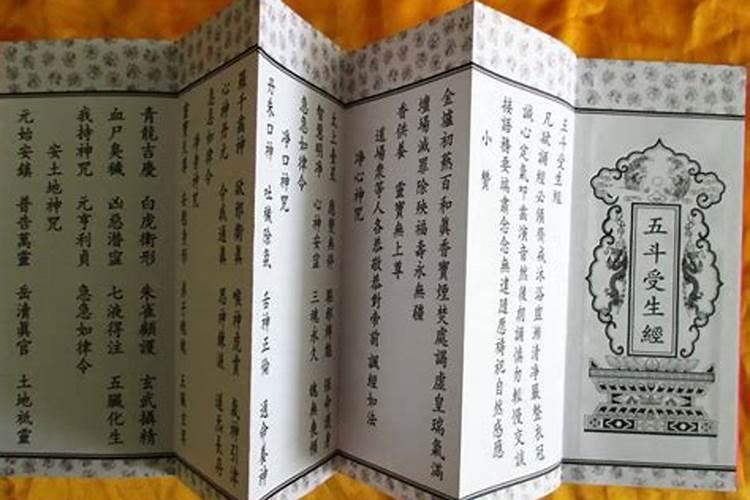 五斗受生經
五斗受生經
凡欲誦經必須齋戒沐浴盥漱清淨嚴整衣冠
誠心定氣叩齒演音然後朗誦慎勿輕慢交談
接語務要端肅念念無違隨應禱祀自然感應
小贊
金爐初爇百和眞香寶煙焚處謁虛皇瑞氣滿
壇場滅罪除殃福壽永無疆
香供養 靈寶無上尊
道場衆等人各恭敬恭對帝前誦經如法
淨心神咒
太上台星 應變無停 驅邪縛魅 保命護身
智慧明淨 心神安寧 三魂永久 魄無喪傾
急急如律令
淨口神咒
丹朱口神 吐穢除氛 舌神正倫 通命養神
羅千齒神 却邪衛眞 喉神虎賁 氣神引津
心神丹元 令我通眞 思神鍊液 道炁長存
急急如律令
淨身神咒
靈寶天尊 安慰身形 弟子魂魄 五臟玄冥
青龍吉慶 白虎衛形 朱雀顧護 玄武攝精
血尸臭穢 凶惡潛寧 七液得注 五臟化生
我持神咒 元亨利貞 急急如律令
安土地神咒
元始安鎮 普告萬靈 岳瀆眞官 土地祗靈